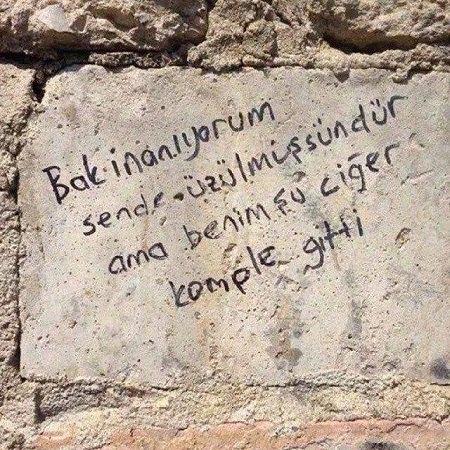 Bak inanıyorum
sende üzülmüşsündür
ama benim şu ciğer
komple gitti